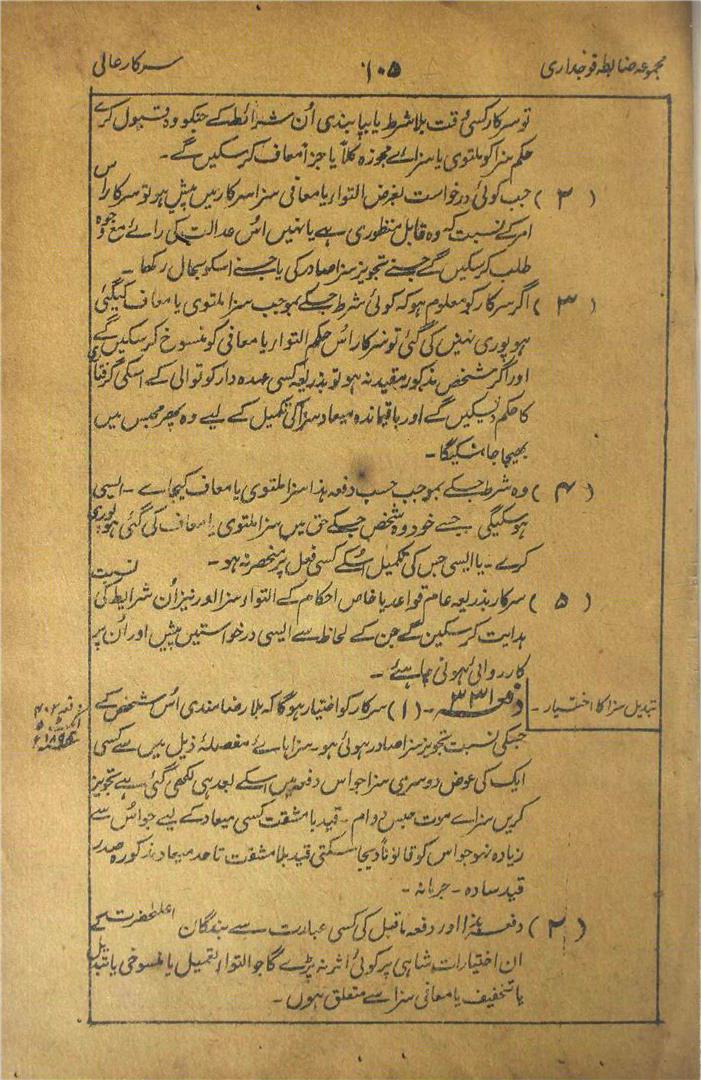 مجموعہ ضابطہ فوجداری
۱۰۵
سرکار عالی
تو سرکار کسی وقت بلا شرط یا بپابندی اُن شرائط کے جنکو وہ قبول کرے
حکم سزا کو ملتوی یا سزاے مجوزہ کلاً یا جزاً معاف کر سکیں گے۔
(۲) جب کوئی درخواست بغرض التوار یا معافی سزا سرکار میں پیش ہو تو سرکار اس
امر کے نسبت کہ وہ قابل منظوری ہے یا نہیں اُس عدالت کی رائے مع وجوہ
طلب کر سکیں گے جسنے تجویز سزا صادر کی یا جسنے اسکو بحال رکھا۔
(۳) اگر سرکار کو معلوم ہو کہ کوئی شرط جسکے بموجب سزا ملتوی یا معاف کیگئی
ہو پوری نہیں کی گئی تو سرکار اُس حکم التوار یا معافی کو منسوخ کر سکیں گے
اور اگر شخص مذکور مقید نہ ہو تو بذریعہ کسی عہدہ دار کوتوالی کے اسکی گرفتاری
کا حکم دیسکیں گے اور باقیماندہ میعاد سزا کی تکمیل کے لیے وہ پھر محبس میں
بھیجا جا سکیگا۔
(۴) وہ شرط جسکے بموجب حسب دفعہ ہذا سزا ملتوی یا معاف کیجاے ۔ ایسی
ہو سکیگی جسے خود وہ شخص جسکے حق میں سزا ملتوی یا معاف کی گئی ہو پوری
کرے ۔ یا ایسی جس کی تکمیل اُسکے کسی فعل پر منحصر نہ ہو۔
(۵) سرکار بذریعہ عام قواعد یا خاص احکام کے التوار سزا اور نیز اُن شرایط کی نسبت
ہدایت کر سکین گے جن کے لحاظ سے ایسی درخواستیں پیش اور اُن پر
کارروائی ہونی چاہئے۔
تبدیل سزا کا اختیار ۔
دفعہ ۳۳۱ ۔ (۱) سرکار کو اختیار ہوگا کہ بلا رضامندی اُس شخص کے
دفعہ ۴۰۲
جسکی نسبت تجویز سزا صادر ہوئی ہو ۔ سزا ہاے مفصلۂ ذیل میں سے کسی
ایک کی عوض دوسری سزا جو اس دفعہ میں اسکے بعد ہی لکھی گئی ہے تجویز
کریں سزاے موت حبس دوام ۔ قید با مشقت کسی میعاد کے لیے جو اُس سے
زیادہ نہو جو اس کو قانوناً دیجا سکتی قید بلا مشقت تا حد میعاد مذکورہ صدر
قید سادہ ۔ جرمانہ ۔
(۲) دفعہ ہذا اور دفعہ ماقبل کی کسی عبارت سے بندگان اعلحضرت کے
ان اختیارات شاہی پر کوئی اثر نہ پڑے گا جو التوار تعمیل یا منسوخی یا تبدیل
یا تخفیف یا معافی سزا سے متعلق ہوں ۔